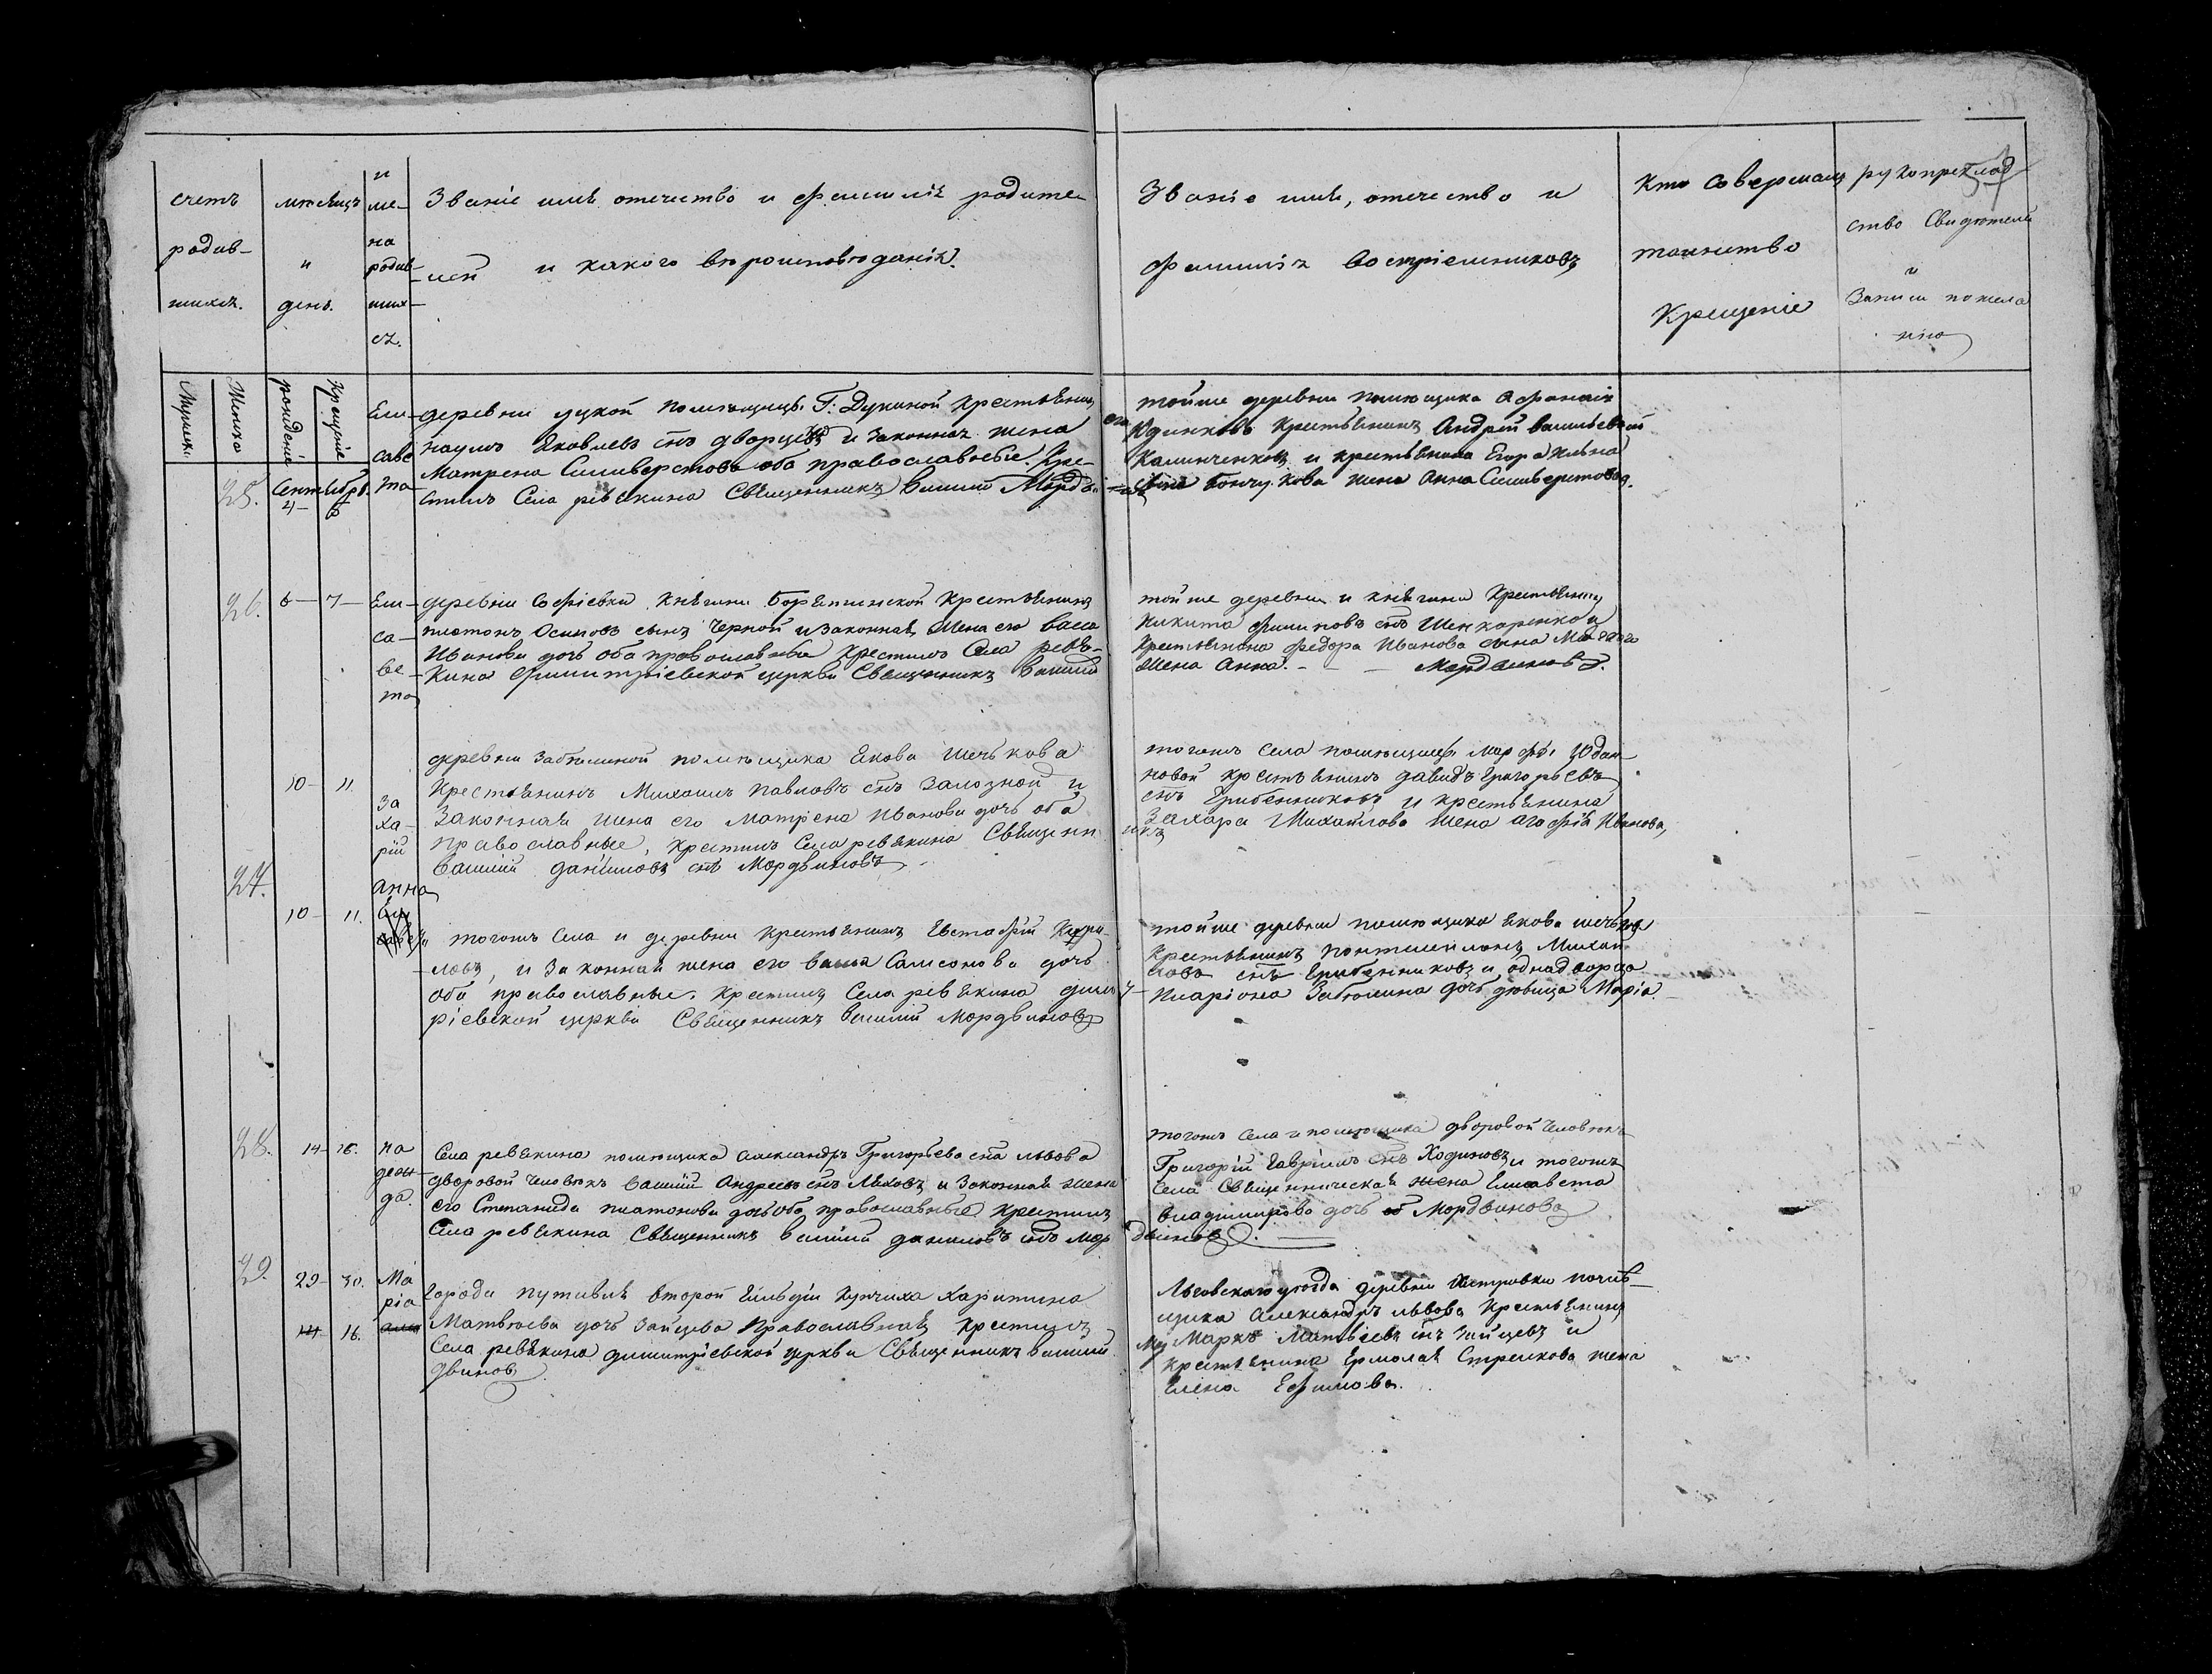 счетъ
родив-
шихся.
месяцъ
и
день.
и
ме-
на
родив-
ших-
ся.
Званіе имя отечество и фамилія родите-
лей и какого вероисповеданія.
Званіе имя, отечество и
фамилія воспріемниковъ
Кто совершалъ
таинство
Крещеніе
рукоприклад
ство Свидетелей
и
Записи по жела
нію
Мужск:
Женска
рожденіе
Крещеніе
25.
Сентября.
4 — 6
Ели-
саве
та
деревни уцкой помещицы Г: Дукиной Крестьянинъ
наумъ Яковлевъ снъ дворцевъ и законная жена его
Матрена Сильверстова оба православные. Кре-
стилъ Села ревякина Священникъ Василій Мордви-
новъ
тойже деревни помещика Афанасія
Крестьянинъ Андрей васильевъ
Калинченковъ и крестьянина Егора Ильина
сына жена Анна Сильверстова.
26.
6 — 7 —
Ели-
са-
ве-
та
деревни Софіевки Княгини Борятинской Крестьянинъ
платонъ Осиповъ сынъ Черной и законная Жена его васа
Иванова дочь оба православные Крестилъ Села ревя-
кина Димитріевской церкви Священникъ Василій
тойже деревни и княгини Крестьянинъ
Никита филиповъ снъ Шенкоренко и
Крестьянина федора Иванова сына
Жена Анна. - - Мордвиновъ.
10 — 11
За
ха-
рій
деревни Забелиной помещика Якова Шечькова
Крестьянинъ Михаилъ Павловъ снъ Залозной и
Законная жена его Матрена Иванова дочь оба
православные, крестилъ Села ревякина Священн
икъ
Василій даниловъ снъ Мордвиновъ
тогожъ села помещицы Марфы Юдан-
новой крестьянинъ давидъ Григорьевъ
снъ Грибенниковъ и крестьянина
Захара Михайлова жена агафія Иванова,
27.
10 — 11.
анна
Ели
савета
тогожъ Села и деревни Крестьянинъ Евстафій Кири-
ловъ, и Законная жена его васса Самсонова дочь
оба православные. крестилъ Села ревякина дими
т-
ріевской церкви Священникъ Василій Мордвиновъ
тойже деревни помещика Якова шечькова
крестьянинъ Пантилеймонъ Михаи
ловъ снъ Грибенниковъ и однадворца
Иларіона Забелина дочь девица Марія.
28.
14 — 16.
на
деж-
да.
Села ревякина помещика александръ Григорьева сна львова
дворовой человекъ василій Андреевъ снъ Ляховъ и Законная жена
его Степанида платонова дочь оба православные Крестилъ
Села ревякина Священникъ василій даниловъ снъ Мор
двиновъ.
тогожъ села и помещика дворовой человекъ
Григорій Гавріилъ снъ Ходиковъ и тогожъ
Села Священническая жена Елисавета
владимирова дочь Мордвинова
29.
29 — 30.
Ма
рія
14 16.
Города путивля второй Гильдіи Купчиха Харитина
Матвеева дочь Зайцева Православная Крестилъ
Села ревякина димитріевской церкви Священникъ василій
Мор
двиновъ
Льговскаго уезда деревни Петровки поме-
щика Александръ львова Крестьянинъ
Маркъ Матвеевъ снъ Зайцевъ и
крестьянина Ермолая Стрелкова жена
Елена Ефимова.